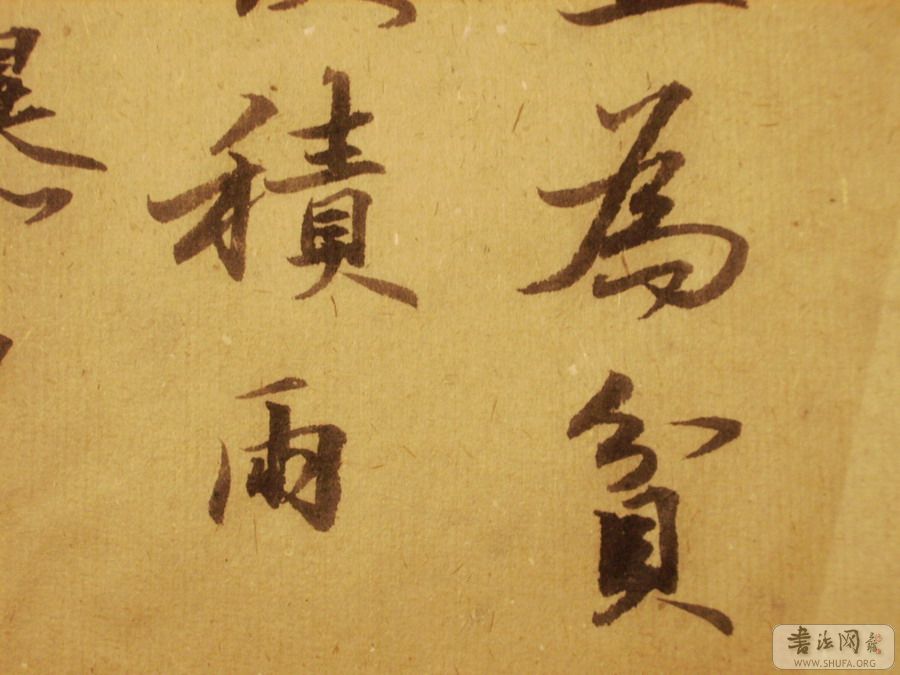 為貧
積雨
書法网
WWW.SHUFA.ORG